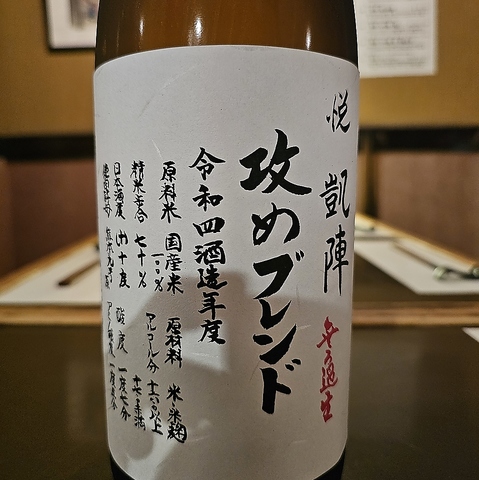 悦 凱陣
無ろ過生
攻めブレンド
令和四酒造年度
原料米 国産米一〇〇% 原材料 米・米麹
精米歩合 七十% アルコール分 十六度以上十七度未満
日本酒度 山十度 酸度 一度七分